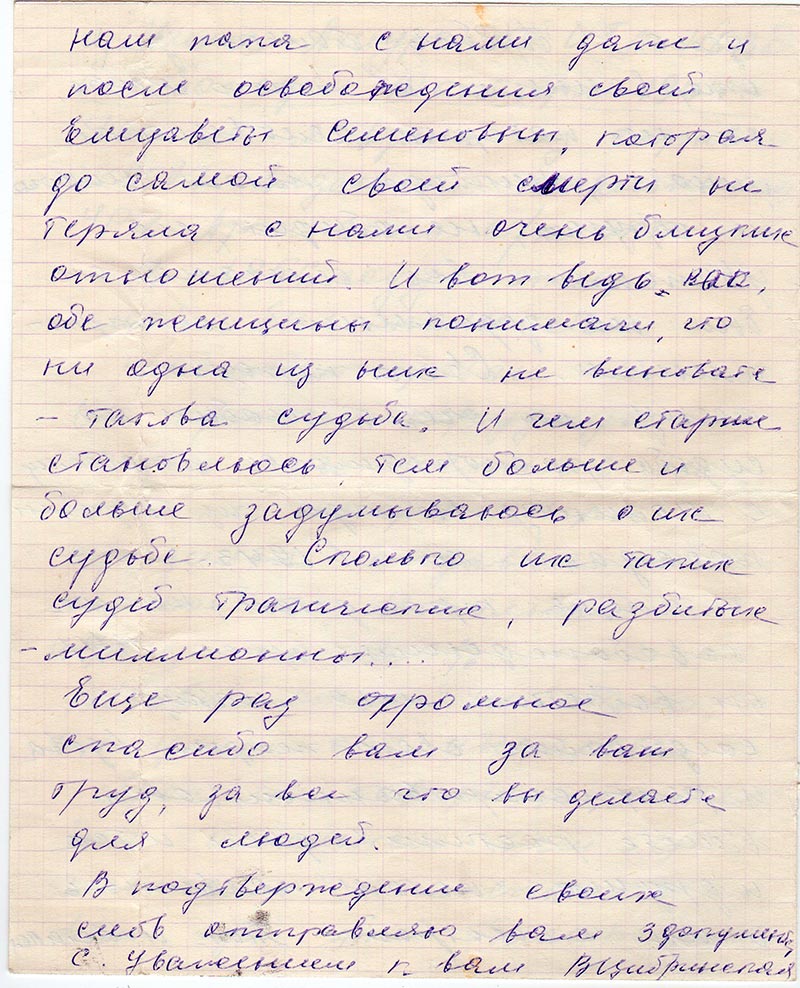 наш папа с нами даже и
после освобождения своей
Елизаветы Семеновны, которая
до самой своей смерти не
теряла с нами очень близких
отношений. И вот ведь как,
обе женщины понимали, что
ни одна из них не виновата
– такова судьба. И чем старше
становлюсь, тем больше и
больше задумываюсь о их
судьбе. Сколько их таких
судеб трагических, разбитых
– миллионны....
Еще раз огромное
спасибо вам за ваш
труд, за все что вы делаете
для людей.
В подтверждение своих
слов отправляю вам 3 документа,
С уважением к вам